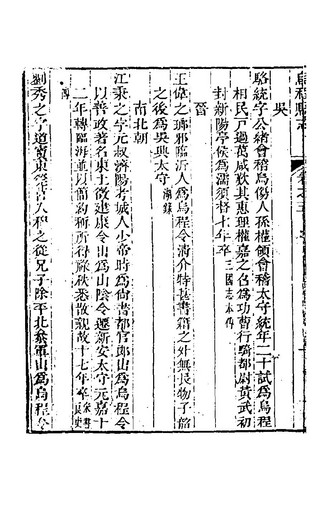 吳
駱統字公緒會稽烏傷人孫權領會稽太守統年二十試爲烏程
相民戶過萬咸歎其惠理權嘉之召爲功曹行騎都尉黃武初
封新陽亭侯爲濡須督七年卒三國志本傳
晉
王偉之瑯邪臨沂人爲烏程令淸介特甚書籍之外無長物子韶
之後爲吳興太守
南北朝
江秉之字元叔濟陽考城人少帝時爲尙書都官郎出爲烏程令
以善政著名東土徵建康令出爲山陰令遷新安太守元嘉十
二年轉臨海並以簡約稱所得祿秩悉散親故十七年卒
劉秀之字道寶東莞莒人穆之從兄子除平北參軍出爲烏程令